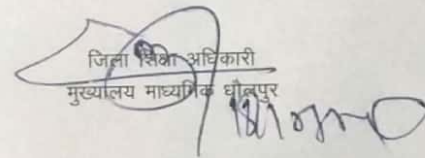 जिला शिक्षा अधिकारी
मुख्यालय माध्यमिक धौलपुर